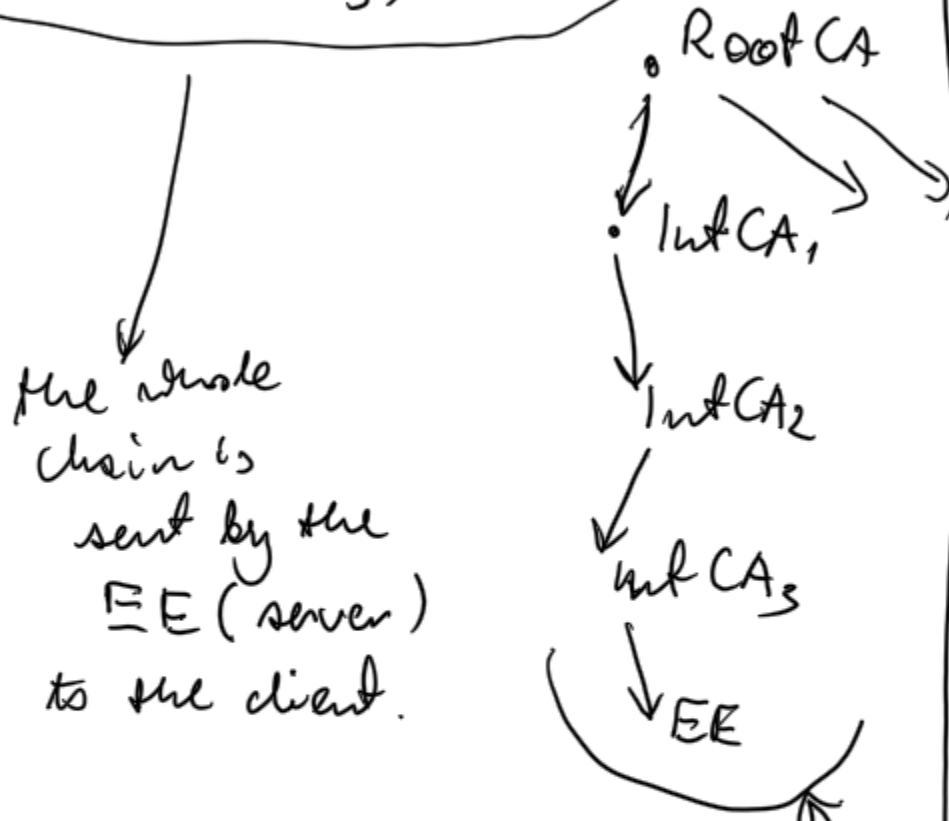 Root CA
Int CA₁
Int CA₂
int CA₃
EE
the whole
chain is
sent by the
EE (server)
to the client.